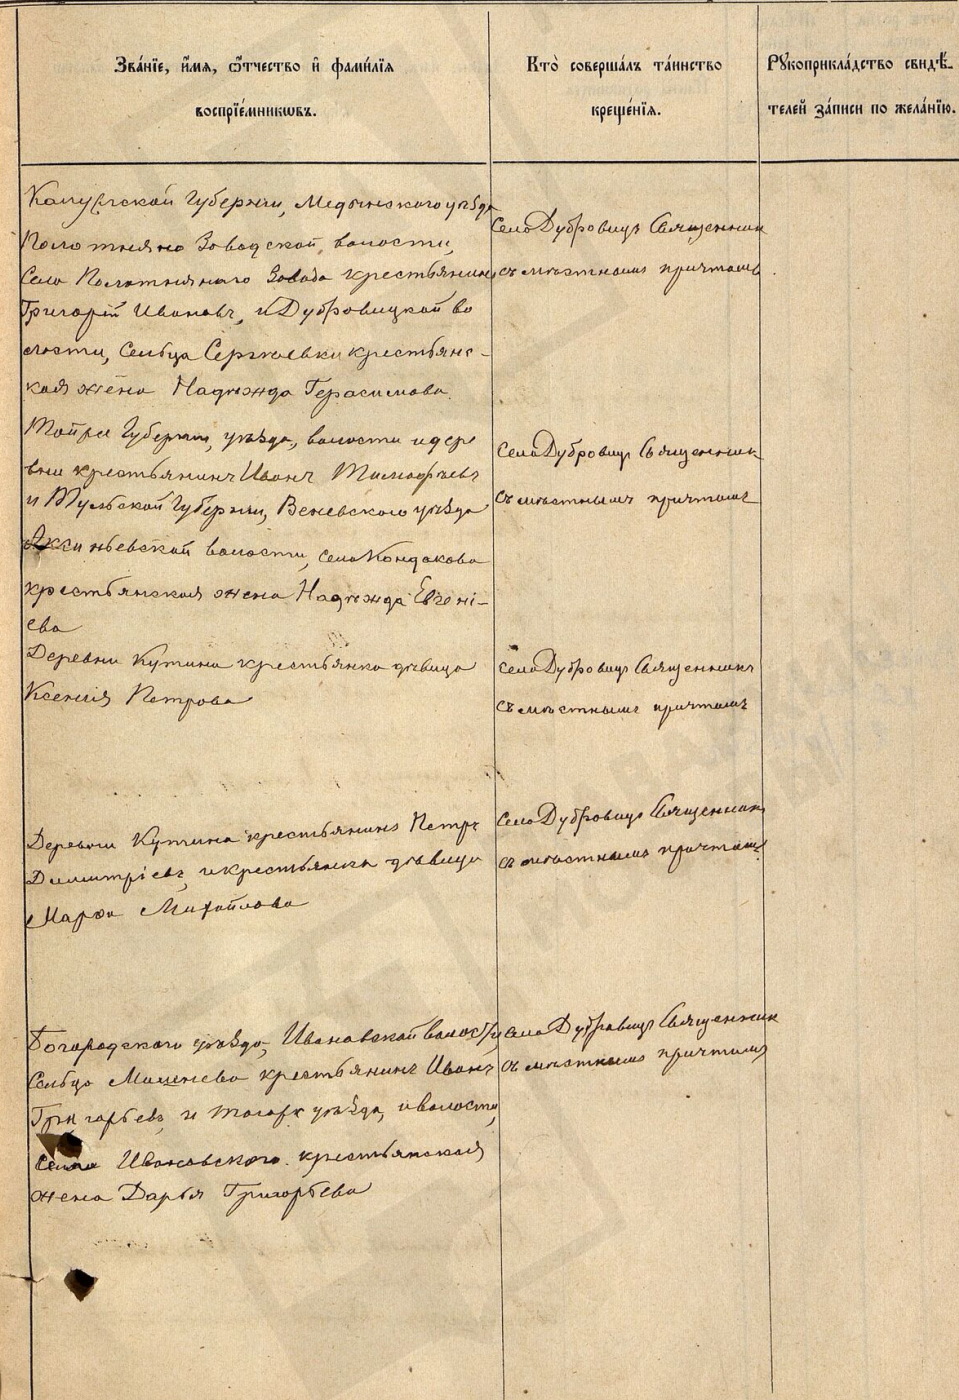 Зва́нїе, и҆́мѧ, ѻ҆́тчество и҆ фами́лїѧ
воспрїе́мникѡвъ.
Кто̀ соверша́лъ та́инство
креще́нїѧ.
Рꙋкоприкла́дство свидѣ́-
телей за́писи по жела́нїю.
Калужской Губерніи, Медынскаго уѣзда
Полотняно Заводской, волости,
Села Полотнянаго Завода крестьянинъ
Григорій Ивановъ, и Дубровицкой во
лости, Сельца Сергѣевки крестьянс-
кая жена Надежда Герасимова.
Села Дубровицъ Священникъ
съ мѣстнымъ причтомъ.
Тойже Губерніи, уѣзда, волости и дере
вни крестьянинъ Иванъ Тимофѣевъ
и Тульской Губерніи, Веневскаго уѣзда
Аксиньевской волости, села Кондакова
крестьянская жена Надежда Евгені-
ева
Села Дубровицъ Священникъ
съ мѣстнымъ причтомъ
Деревни Кутина крестьянка дѣвица
Ксенія Петрова
Села Дубровицъ Священникъ
съ мѣстнымъ причтомъ
Деревни Кутина крестьянинъ Петръ
Димитріевъ, и крестьянка дѣвица
Марѳа Михайлова
Села Дубровицъ Священникъ
съ мѣстнымъ причтомъ
Богородскаго уѣзда, Ивановской волости
Сельца Мишнева крестьянинъ Иванъ
Григорьевъ, и тогоже уѣзда, и волости,
села Ивановскаго крестьянская
жена Дарья Григорьева
Села Дубровицъ Священникъ
съ мѣстнымъ причтомъ